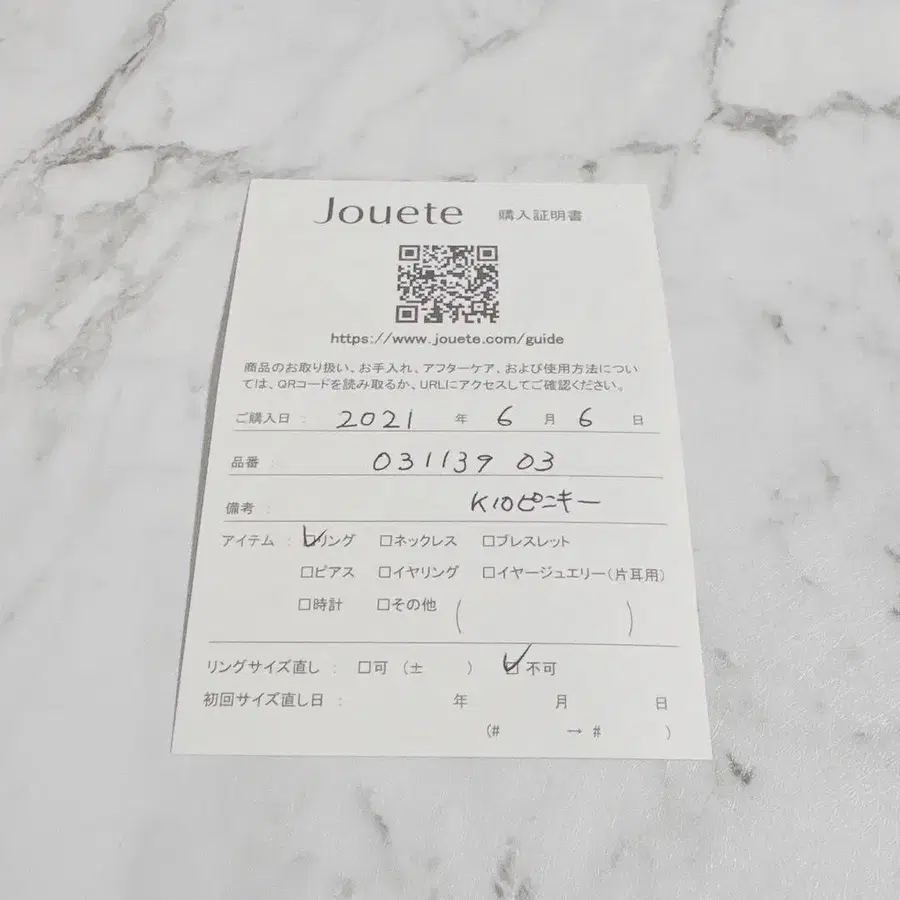 Jouete 購入証明書
https://www.jouete.com/guide
商品のお取り扱い、お手入れ、アフターケア、および使用方法につい
ては、QRコードを読み取るか、URLにアクセスしてご確認ください。
ご購入日 : 2021 年 6 月 6 日
品番 : 031139 03
備考 : K10ピンキー
アイテム : ☑リング □ネックレス □ブレスレット
□ピアス □イヤリング □イヤージュエリー(片耳用)
□時計 □その他 ( )
リングサイズ直し : □可 (± ) ☑不可
初回サイズ直し日 : 年 月 日
(# → # )